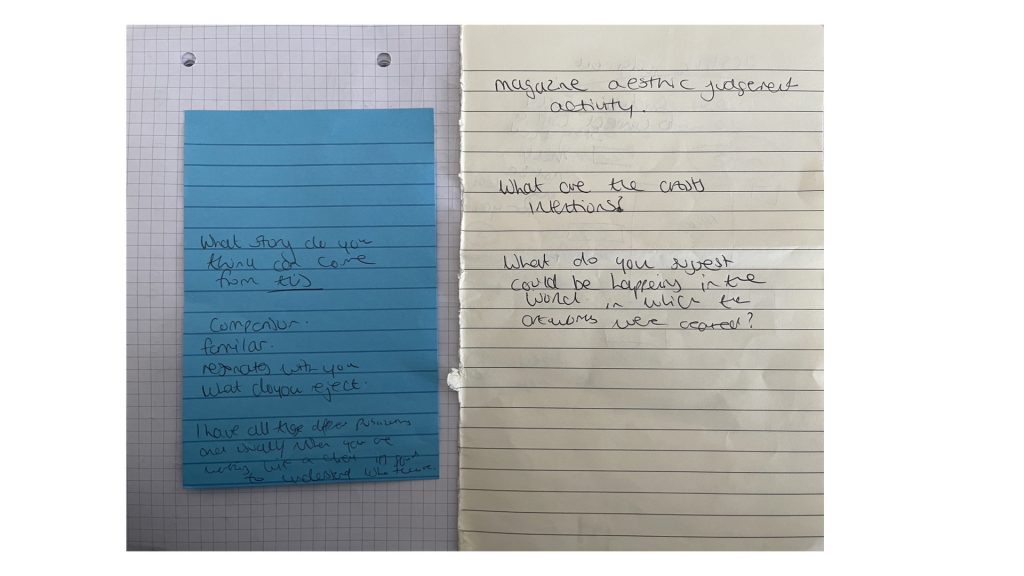 What story do you
think can come
from this
Comparison.
familiar.
resonates with you
What do you reject.
I have all these
and usually when you are
with a client
to understand who
magazine aesthic judgement
activity.
What are the artists
intentions?
What do you suggest
could be happening in the
world in which the
artworks were created?